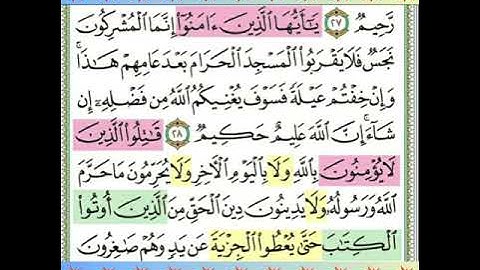 رَّحِيمٌ ٢٧ يَٰٓأَيُّهَا ٱلَّذِينَ ءَامَنُوٓا۟ إِنَّمَا ٱلْمُشْرِكُونَ
نَجَسٌ فَلَا يَقْرَبُوا۟ ٱلْمَسْجِدَ ٱلْحَرَامَ بَعْدَ عَامِهِمْ هَٰذَا ۚ
وَإِنْ خِفْتُمْ عَيْلَةً فَسَوْفَ يُغْنِيكُمُ ٱللَّهُ مِن فَضْلِهِۦٓ إِن
شَآءَ ۚ إِنَّ ٱللَّهَ عَلِيمٌ حَكِيمٌ ٢٨ قَٰتِلُوا۟ ٱلَّذِينَ
لَا يُؤْمِنُونَ بِٱللَّهِ وَلَا بِٱلْيَوْمِ ٱلْءَاخِرِ وَلَا يُحَرِّمُونَ مَا حَرَّمَ
ٱللَّهُ وَرَسُولُهُۥ وَلَا يَدِينُونَ دِينَ ٱلْحَقِّ مِنَ ٱلَّذِينَ أُوتُوا۟
ٱلْكِتَٰبَ حَتَّىٰ يُعْطُوا۟ ٱلْجِزْيَةَ عَن يَدٍ وَهُمْ صَٰغِرُونَ